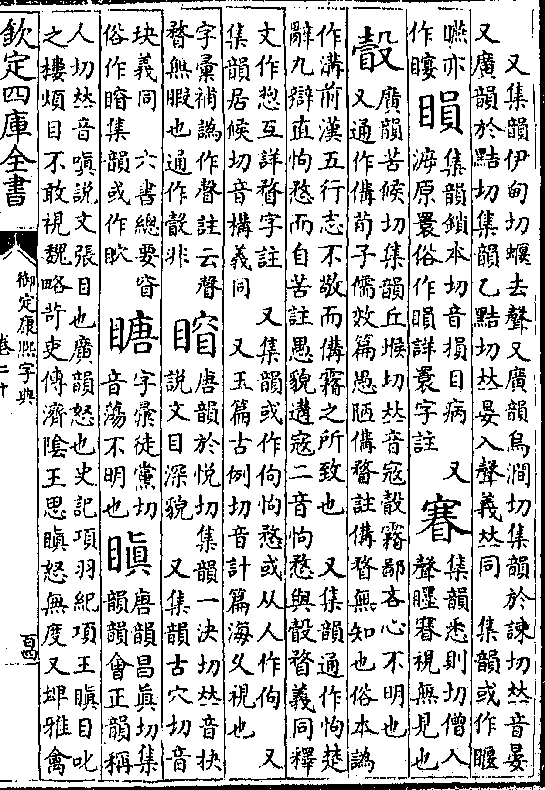 又集韻伊甸切蝘去聲又廣韻烏澗切集韻於諫切𠀤音晏
又廣韻於黠切集韻乙黠切𠀤晏入聲義𠀤同　集韻或作
嚥亦
作
集韻鎖本切音損目病　又
海原睘俗作詳睘字註
集韻悉則切僧入
聲視無見也
瞉
廣韻苦候切集韻丘堠切𠀤音寇瞉霧鄙吝心不明也
又通作傋荀子儒效篇愚陋傋瞀註傋瞀無知也俗本譌
作溝前漢五行志不敬而傋霿之所致也　又集韻通作怐楚
辭九辯直怐愗而自苦註愚貌遘寇二音怐愗與瞉瞀義同釋
文作互詳瞀字註　又集韻或作佝怐愗或从人作佝　又
集韻居候切音構義同　又玉篇古例切音計篇海久視也
字彙補譌作註云
瞀無暇也通作瞉非
唐韻於悅切集韻一決切𠀤音抉
說文目深貌　又集韻古穴切音
玦義同　六書總要窅
俗作集韻或作
字彙徒黨切
音蕩不明也
瞋
唐韻昌眞切集
韻韻會正韻稱
人切𠀤音嗔說文張目也廣韻怒也史記項羽紀項王瞋目叱
之樓煩目不敢視魏略苛吏傳濟陰王思瞋怒無度又埤雅禽
欽定四庫全書
御定康熙字典
卷二十
百四